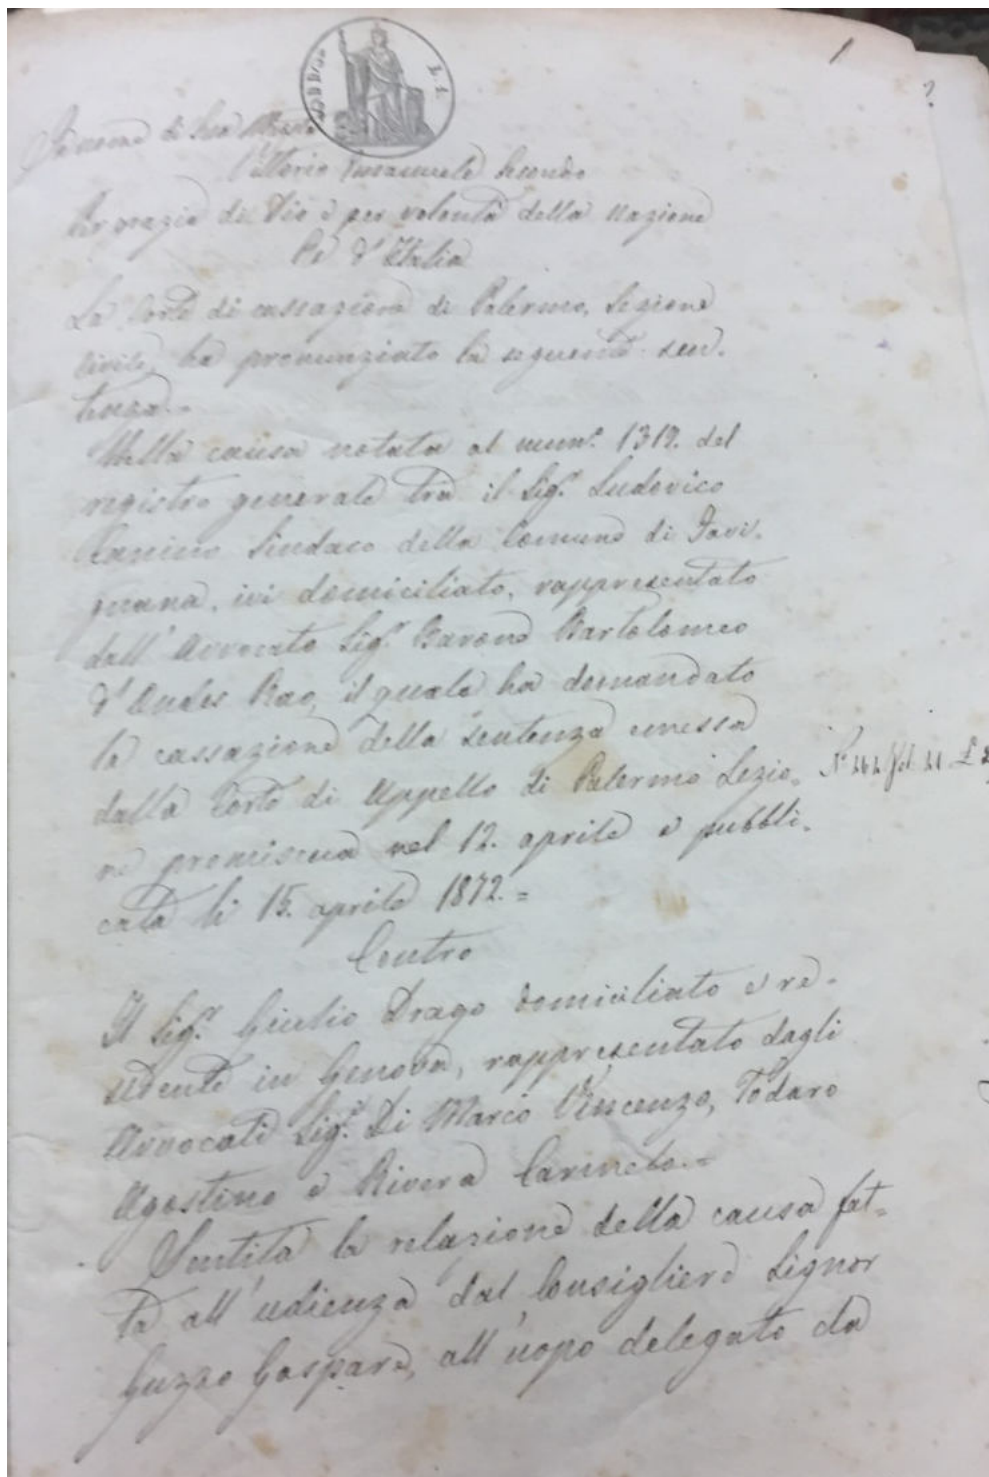 1
2
In nome di Sua Maestà
Vittorio Emanuele Secondo
Per grazia di Dio e per volontà della nazione
Re d'Italia
La Corte di cassazione di Palermo, Sezione
Civile, ha pronunziato la seguente sen.
tenza.=
Nella causa notata al num.º 1319. del
registro generale tra il Sig.r Ludovico
Canino Sindaco della Comune di Favi.
gnana, ivi domiciliato, rappresentato
dall'Avvocato Sig.r Barone Bartolomeo
D'Ondes Rao, il quale ha domandato
la cassazione della sentenza emessa
dalla Corte di Appello di Palermo Sezio.
ne promiscua nel 12. aprile e pubbli.
cata li 15. aprile 1872.=
Contro
Il Sig.r Giulio Drago domiciliato e re.
sidente in Genova, rappresentato dagli
Avvocati Sig.ri Di Marco Vincenzo, Todaro
Agostino e Rivera Carmelo.=
Sentita la relazione della causa fat=
ta all'udienza dal Consigliere Signor
Guzzo Gaspare, all'uopo delegato da